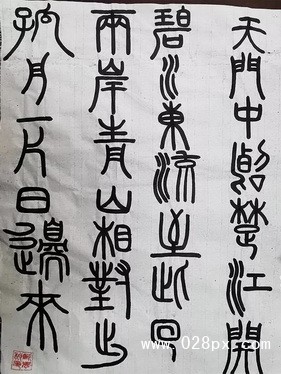 天門中斷楚江開
碧水東流此回
兩岸青山相對出
孤一片日邊來